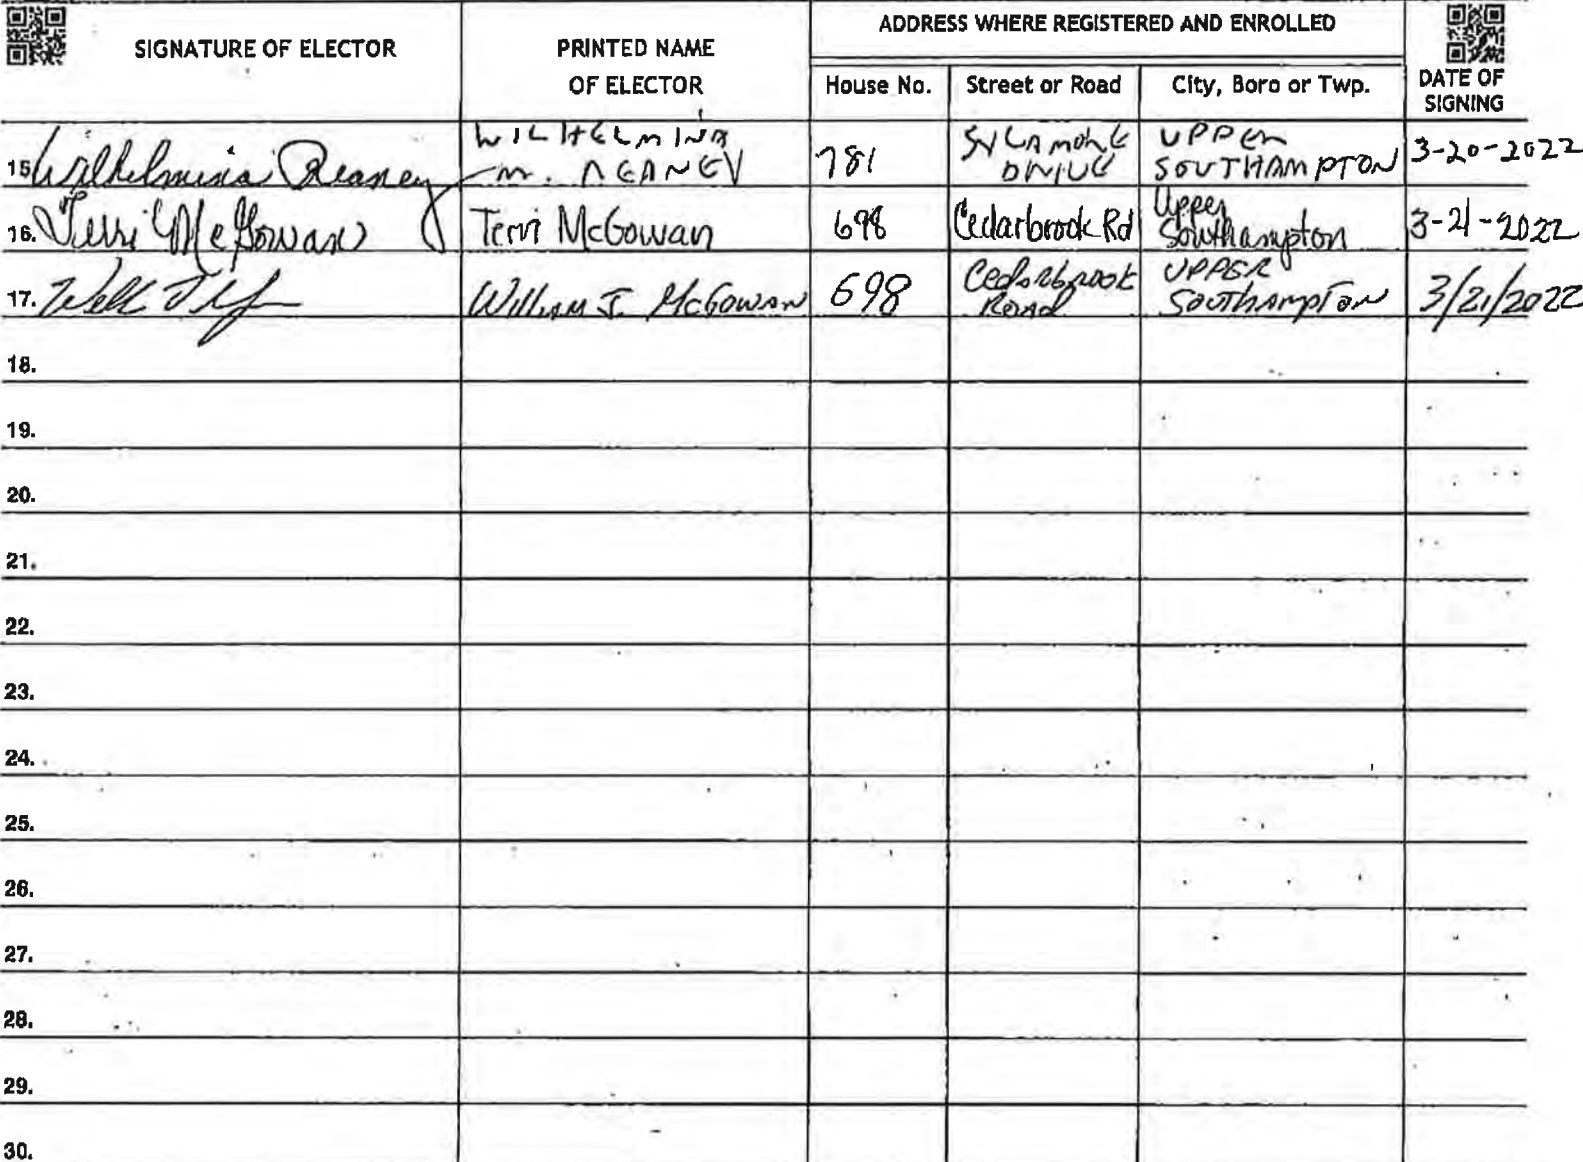 SIGNATURE OF ELECTOR
PRINTED NAME
OF ELECTOR
ADDRESS WHERE REGISTERED AND ENROLLED
House No.
Street or Road
City, Boro or Twp.
DATE OF
SIGNING
15. Wilhelmina Reaney WILHELMINA M. REANEY 781 SYCAMORE DRIVE UPPER SOUTHAMPTON 3-20-2022
16. Terri McGowan Terri McGowan 698 Cedarbrook Rd Upper Southampton 3-21-2022
17. William J. McGowan 698 Cedarbrook Road UPPER Southampton 3/21/2022
18.
19.
20.
21.
22.
23.
24.
25.
26.
27.
28.
29.
30.